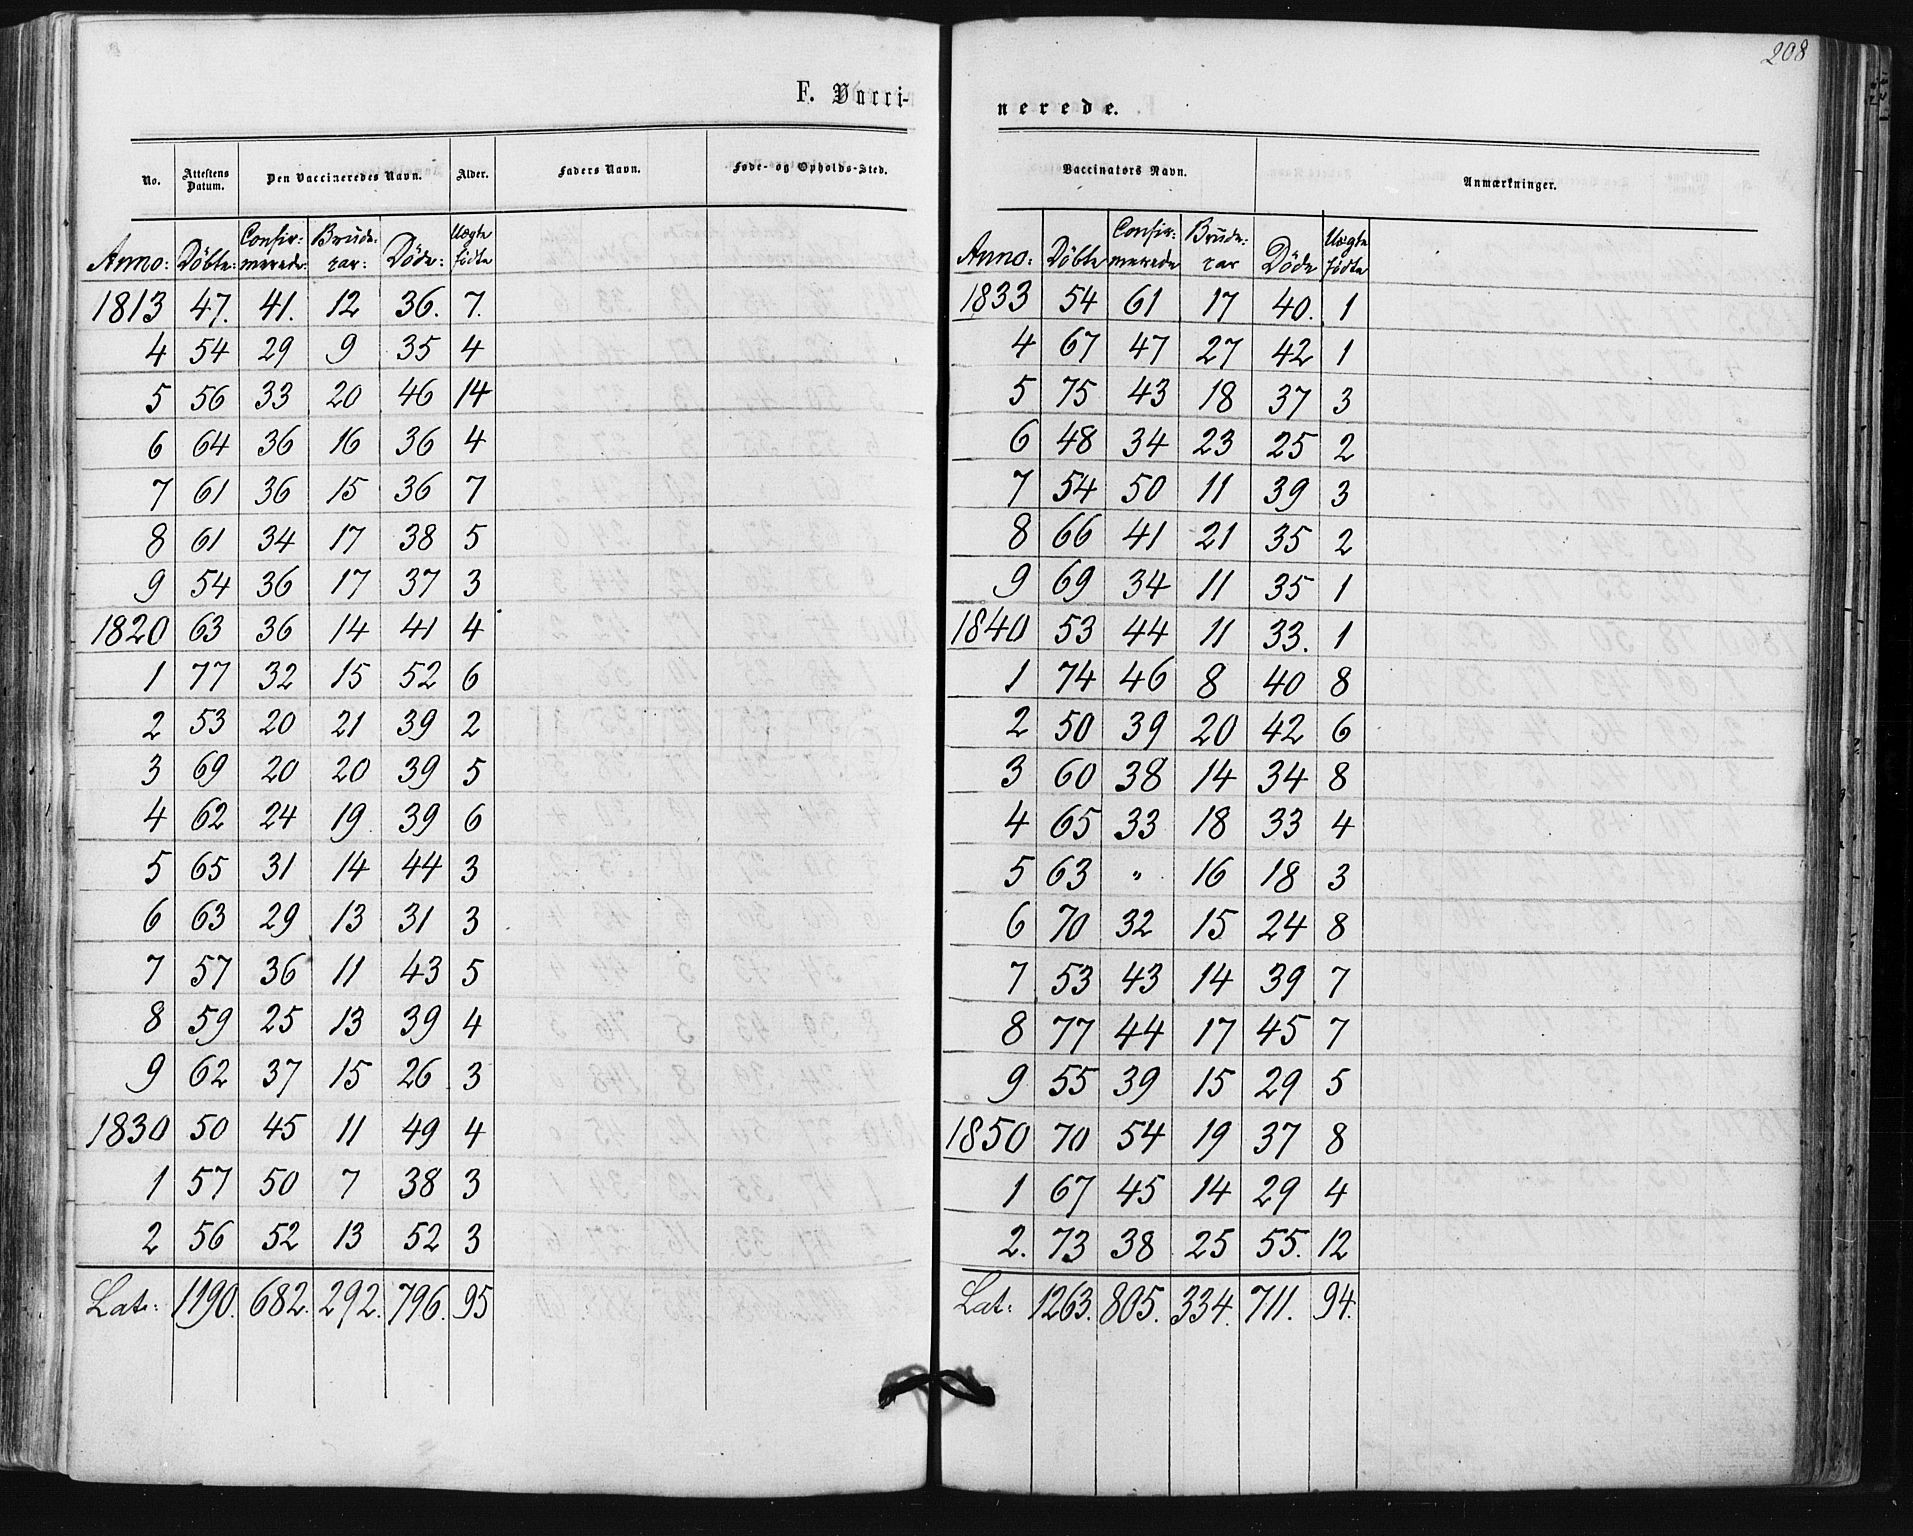 208
F. Vacci-
No. Attestens Datum. Den Vaccineredes Navn. Alder. Faders Navn. Føde- og Opholds-Sted.
Anno: Döbte: Confir:merede: Brude:par: Döde: Uægte fødte
1813 47. 41. 12 36. 7.
4 54 29 9 35 4
5 56 33 20 46 14
6 64 36 16 36 4
7 61 36 15 36 7
8 61 34 17 38 5
9 54 36 17 37 3
1820 63 36 14 41 4
1 77 32 15 52 6
2 53 20 21 39 2
3 69 20 20 39 5
4 62 24 19 39 6
5 65 31 14 44 3
6 63 29 13 31 3
7 57 36 11 43 5
8 59 25 13 39 4
9 62 37 15 26 3
1830 50 45 11 49 4
1 57 50 7 38 3
2 56 52 13 52 3
Lat: 1190. 682. 292. 796. 95
nerede.
Vaccinators Navn. Anmærkninger.
Anno: Döbte Confir:merede Brude:par Döde Uægte födte
1833 54 61 17 40. 1
4 67 47 27 42 1
5 75 43 18 37 3
6 48 34 23 25 2
7 54 50 11 39 3
8 66 41 21 35 2
9 69 34 11 35 1
1840 53 44 11 33. 1
1 74 46 8 40 8
2 50 39 20 42 6
3 60 38 14 34 8
4 65 33 18 33 4
5 63 " 16 18 3
6 70 32 15 24 8
7 53 43 14 39 7
8 77 44 17 45 7
9 55 39 15 29 5
1850 70 54 19 37 8
1 67 45 14 29 4
2. 73 38 25 55. 12
Lat: 1263. 805. 334. 711. 94.